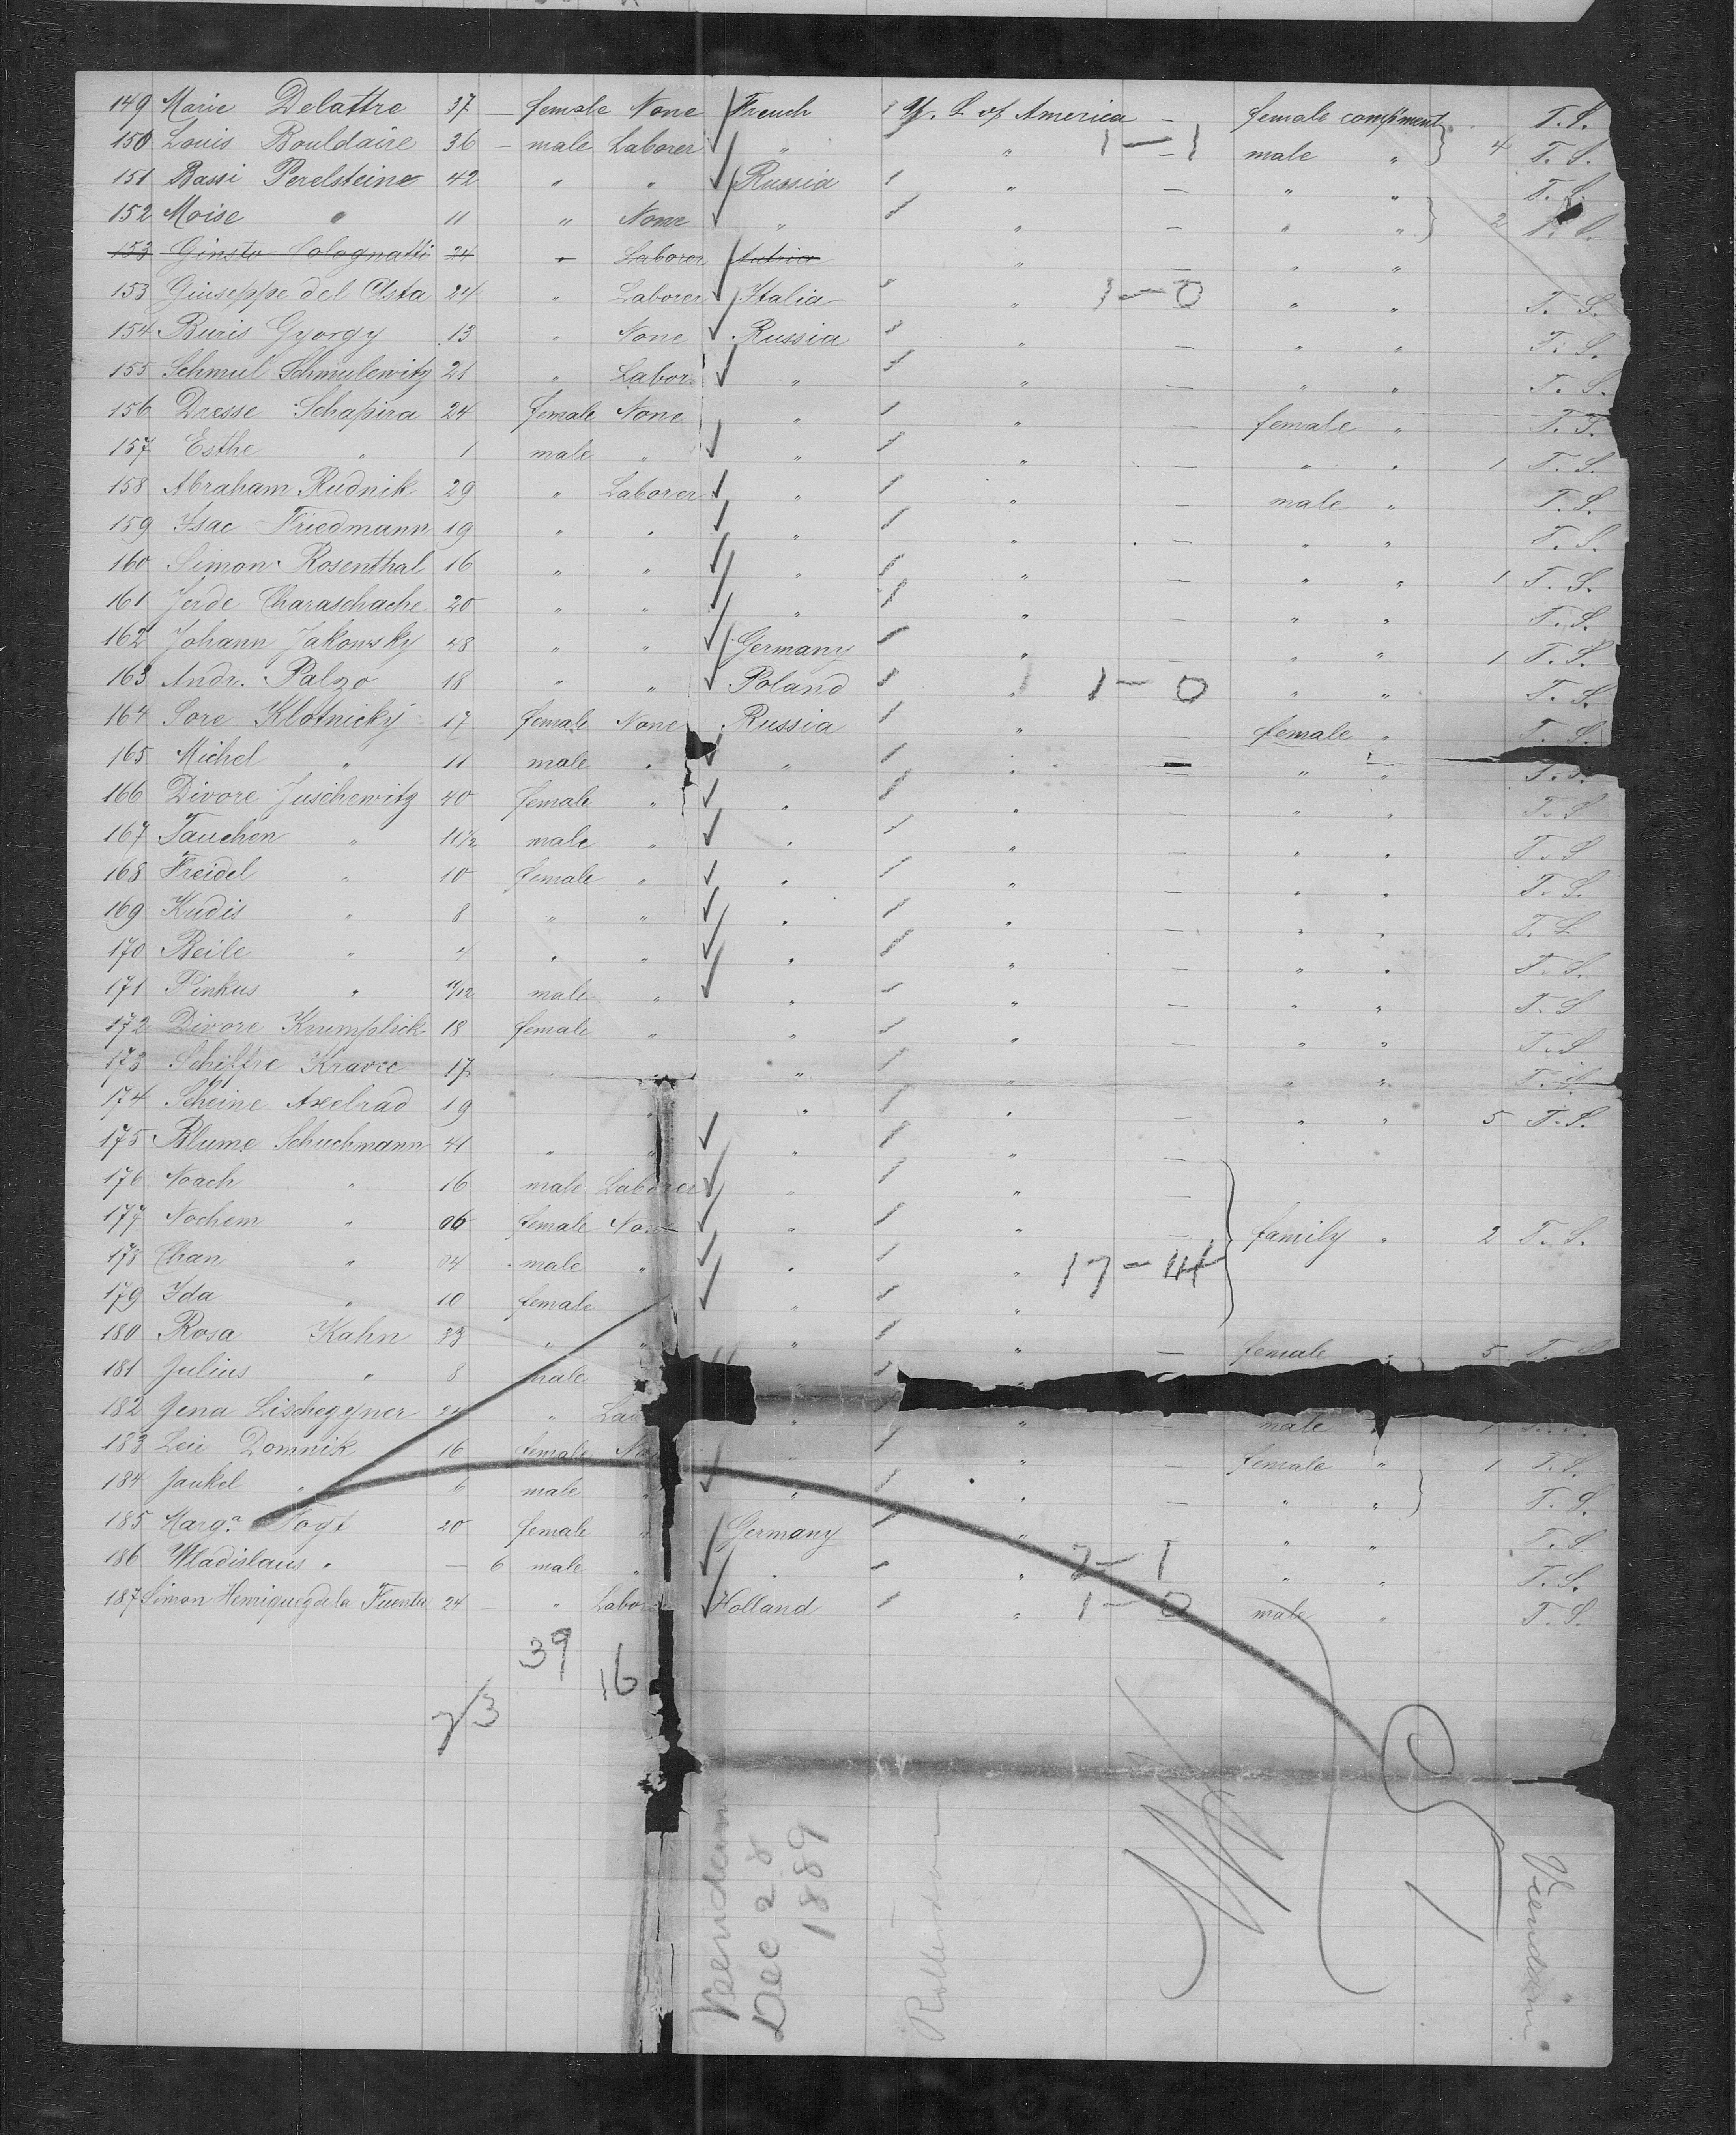 149 Marie Delattre 37 — female None French U. S. of America — female compment T.S.
150 Louis Bouldaire 36 — male Laborer " " 1—1 — male " 4 T. S.
151 Bassi Perelsteine 42 " " Russia " — " " T. S.
152 Moise " 11 " None " " — " " 2 T. S.
153 Ginsto Colognatti 24 " Laborer Autria " — " "
153 Giuseppe del Asta 24 " Laborer Italia " 1—0 " " T. S.
154 Buris Gyorgy 13 " None Russia " — " " T. S.
155 Schmul Schmulewitz 21 " Labor " " — " " T. S.
156 Dresse Schapira 24 female None " " — female " T. S.
157 Esthe " 1 male " " " — " " 1 T. S.
158 Abraham Rudnik 29 " Laborer " " — male " T. S.
159 Isac Friedmann 19 " " " " — " " T. S.
160 Simon Rosenthal 16 " " " " — " " 1 T. S.
161 Jerde Charaschache 20 " " " " — " " T. S.
162 Johann Jakowsky 48 " " Germany " — " " 1 T. S.
163 Andr. Palzo 18 " " Poland " 1—0 " " T. S.
164 Sore Klotnicky 17 female None Russia " — female " T. S.
165 Michel " 11 male " " " — " " T. S.
166 Divore Juschewitz 40 female " " " — " " T. S
167 Tauchen " 11 1/2 male " " " — " " T. S
168 Freidel " 10 female " " " — " " T. S.
169 Kudis " 8 " " " " — " " T. S.
170 Beile " 4 " " " " — " " T. S.
171 Pinkus " 11/12 male " " " — " " T. S
172 Divore Krumplick 18 female " " " — " " T. S
173 Schiffre Kravec 17 " " " " " " T. S.
174 Scheine Axelrad 19 " " " — " " 5 T. S.
175 Blume Schuchmann 41 " " " " —
176 Noach " 16 male Laborer " " —
177 Nochem " 06 female None " " — family " 2 T. S.
178 Chan " 04 male " " " 17—4
179 Ida " 10 female " "
180 Rosa Kahn 33 " " " " — female " 5 T. S
181 Julius " 8 male
182 Jena Lischegyner 24 " " " — male " 1
183 Leie Domnik 16 female " " — female " 1 T. S.
184 Jankel " 6 male " " " — " " T. S.
185 Marg.a Vogt 20 female " Germany " " " T. S.
186 Wladislaus " — 6 male " " " 2—1 " " T. S.
187 Simon Henriquez de la Fuenta 24 — " Labor Holland " 1—0 male " T. S.
39
16
23
Veendam
Dec 28
1889
Rotterdam
Veendam